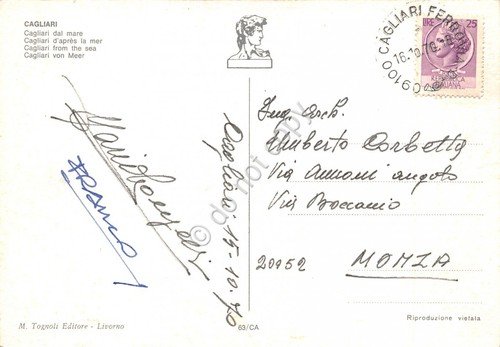 CAGLIARI
Cagliari dal mare
Cagliari d'après la mer
Cagliari from the sea
Cagliari von Meer
09100 CAGLIARI FERROVIA
16.10.70
LIRE 25
REPUBBLICA
ITALIANA
Ing. Arch.
Umberto Corbetta
Via Annoni angolo
Via Boccaccio
20052 MONZA
Cagliari 15-10-70
FRANCO
© do not copy
M. Tognoli Editore - Livorno
63/CA
Riproduzione vietata